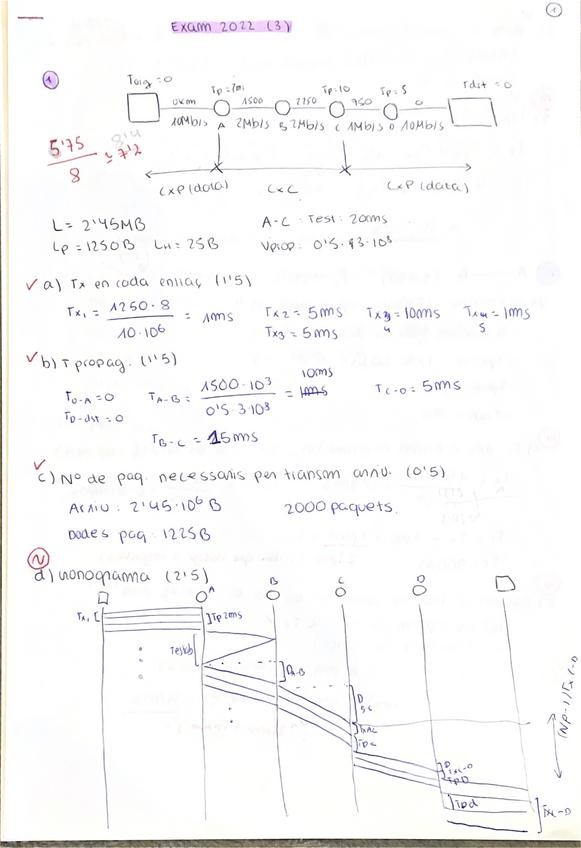 1
Exam 2022 (3)
1
Torig = 0
Tp = 2ms
Tp = 10
Tp = 5
Tdst = 0
0Km 1500 2250 750 0
10Mb/s A 2Mb/s B 2Mb/s C 1Mb/s D 10Mb/s
5'75
8
≈ 7'2
8'4
CxP (data) CxC CxP (data)
L = 2'45MB A-C: Test: 20ms
Lp = 1250B LH = 25B Vprop: 0'5·3·10³
a) Tx en cada enllaç (1'5)
Tx1 = 1250·8 / 10·10⁶ = 1ms Tx2 = 5ms Tx4 = 10ms Tx5 = 1ms
Tx3 = 5ms
b) T propag. (1'5)
TO-A = 0 TA-B = 1500·10³ / 0'5·3·10³ = 10ms TC-D = 5ms
TD-dst = 0
TB-C = 15ms
c) Nº de paq. necessaris per transm arxiu. (0'5)
Arxiu: 2'45·10⁶ B 2000 paquets.
Dades paq: 1225B
N
d) nonograma (2'5)
A B C D
Tx1 Tp 2ms
Testab
DA-B
D B-C
Tpc
D
Txc-D
TpD
Tpd
Txc-D
(Np-1)Txc-D